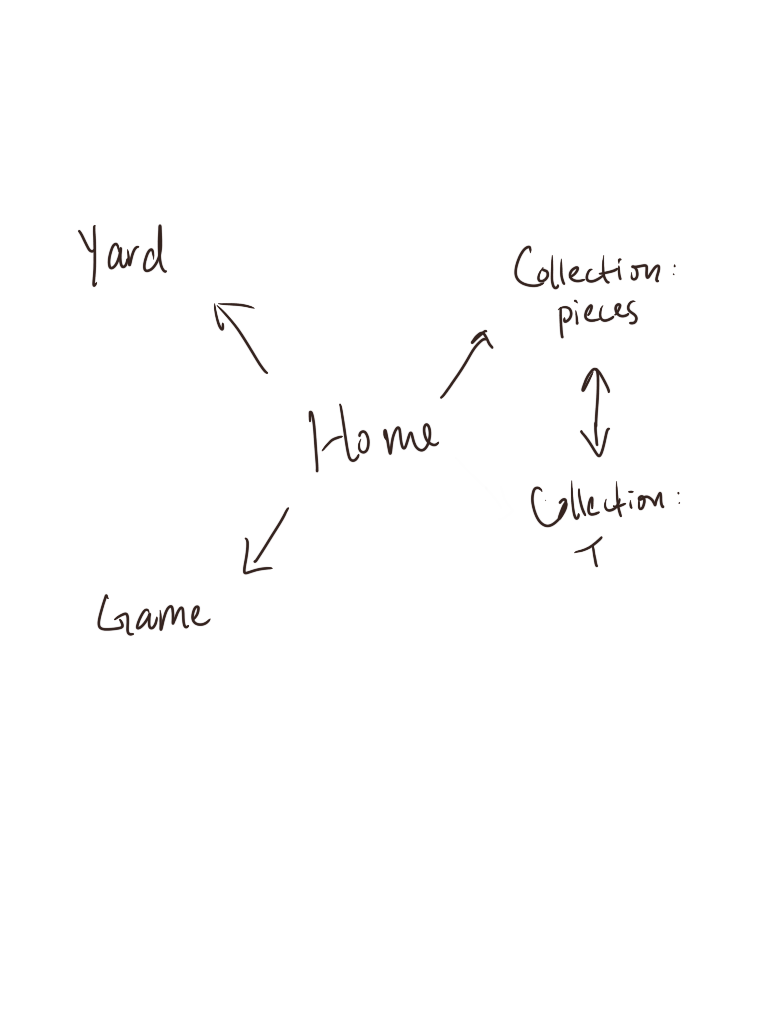 Yard
Collection:
pieces
Home
Collection:
T
Game